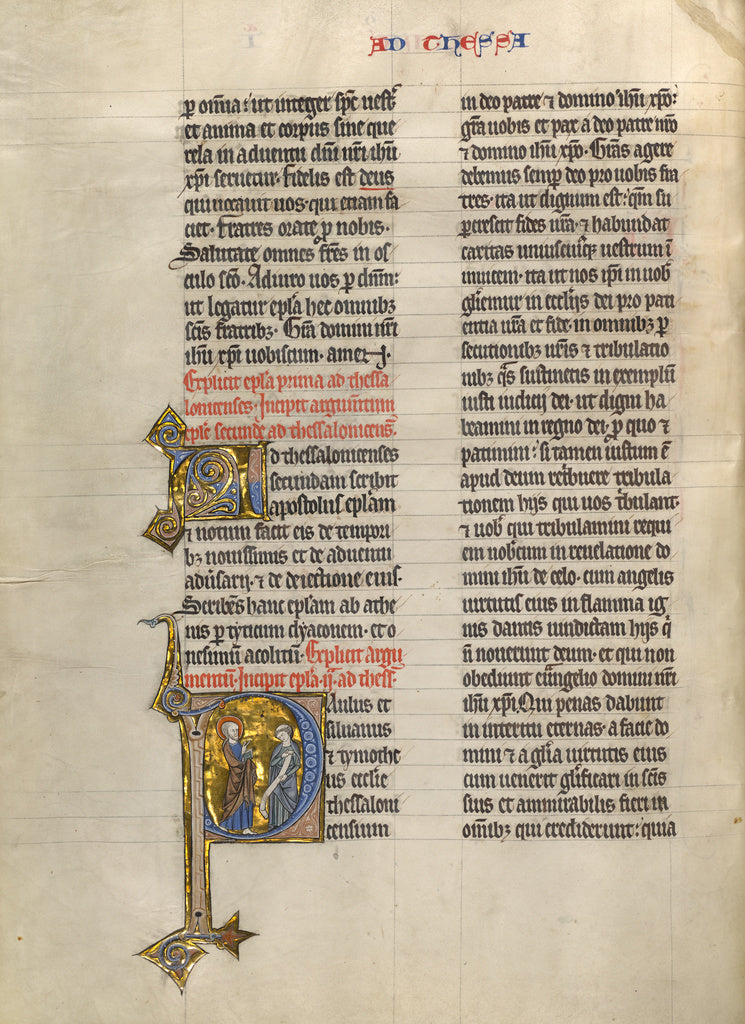 AD THESSA
p omia: ut integer spc uestr
et anima et corpus sine que
rela in aduentu dni nri ihu
xpi seruetur. fidelis est deus
qui uocauit uos. qui etiam fa
ciet. fratres orate p nobis.
Salutate omnes fres in os
culo sco. Adiuro uos p dnm:
ut legatur epla hec omnibz
scis fratribz. Gra domini nri
ihu xpi uobiscum. amen.
Explicit epla prima ad thessa
lonicenses. Incipit argumtum
eple secunde ad thessalonicens.
Ad thessalonicenses
secundam scribit
apostolus eplam
⁊ notum facit eis de tempori
bz nouissimis et de aduentu
aduersarij. ⁊ de deiectione eius.
Scribens hanc eplam ab athe
nis p tyticum dyaconem. et o
nesimu acolitu. Explicit argu
mentu. Incipit epla .ij. ad thess.
Paulus et
siluanus
⁊ tymothe
us ecclie
thessaloni
censium
in deo patre ⁊ domino ihu xpo:
gra uobis et pax a deo patre nro
⁊ domino ihu xpo. Gras agere
debemus semp deo pro uobis fra
tres. ita ut dignum est: qm su
percrescit fides ura. ⁊ habundat
caritas uniuscuiusq uestrum i
inuicem. ita ut nos ipi in uob
gliemur in ecclijs dei pro pati
entia ura et fide. in omnibz p
secutionibz uris ⁊ tribulatio
nibz qs sustinetis in exemplu
iusti iudicij dei. ut digni ha
beamini in regno dei. p quo ⁊
patimini: si tamen iustum e
apud deum retbuere tribula
tionem hijs qui uos tbulant.
⁊ uob qui tribulamini requi
em nobcum in reuelatione do
mini ihu de celo. cum angelis
uirtutis eius in flamma ig
nis dantis uindictam hijs q
n nouerunt deum. et qui non
obediunt euangelio domini nri
ihu xpi. Qui penas dabunt
in interitu eternas. a facie do
mini ⁊ a glia uirtutis eius
cum uenerit glificari in scis
suis et ammirabilis fieri in
omibz qui crediderunt: quia